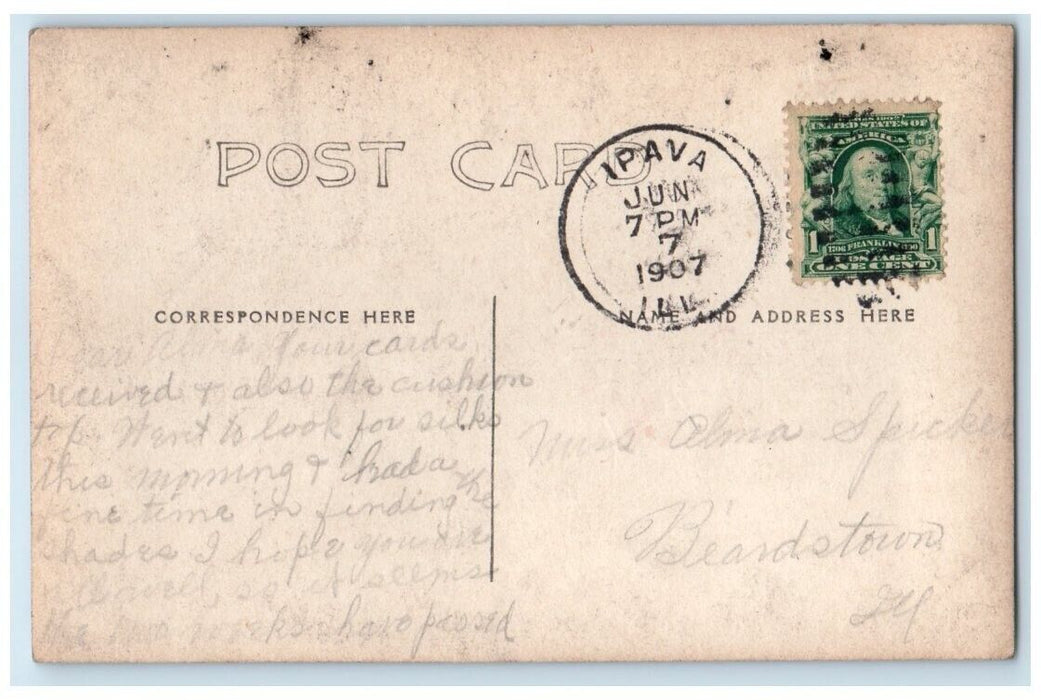 POST CARD
IPAVA
JUN
7 PM
7
1907
ILL.
UNITED STATES OF
AMERICA
1 FRANKLIN 1
POSTAGE
ONE CENT
CORRESPONDENCE HERE
NAME AND ADDRESS HERE
Your cards
received & also the cushion
top. Went to look for silks
this morning & had a
fine time in finding the
shades I hope you are
well, so it seems
the two weeks have passed
Miss Alma Spicker
Beardstown
Ill